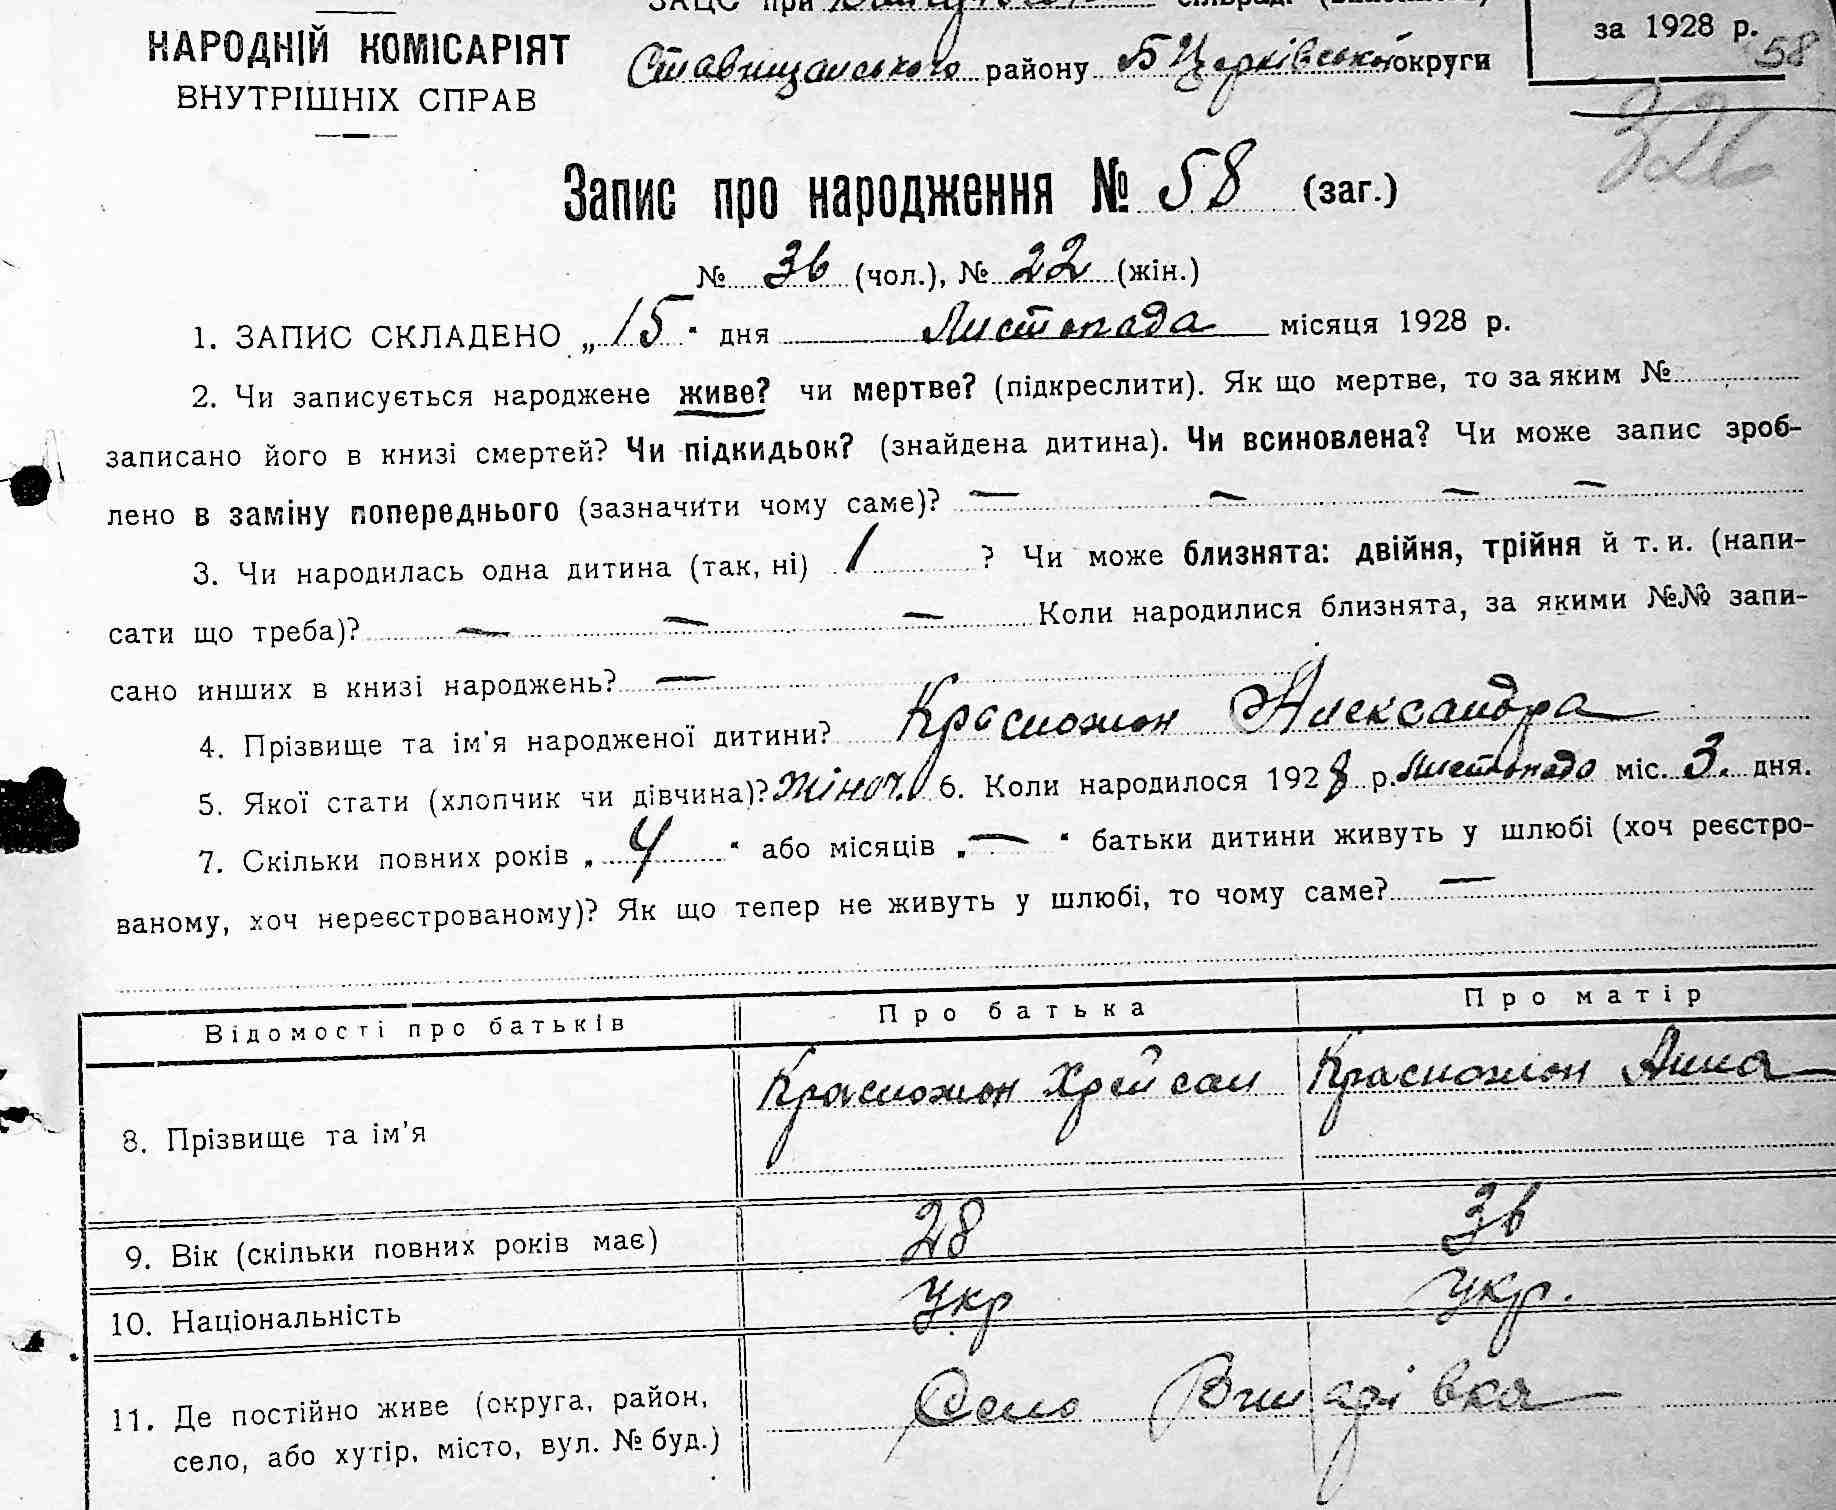 ЗАЦС при сільрад.
НАРОДНІЙ КОМІСАРІЯТ
ВНУТРІШНІХ СПРАВ
Ставищанського району Б Церківської округи
за 1928 р.
58
326
Запис про народження № 58 (заг.)
№ 36 (чол.), № 22 (жін.)
1. ЗАПИС СКЛАДЕНО „15" дня Листопада місяця 1928 р.
2. Чи записується народжене живе? чи мертве? (підкреслити). Як що мертве, то за яким №
записано його в книзі смертей? Чи підкидьок? (знайдена дитина). Чи всиновлена? Чи може запис зроб-
лено в заміну попереднього (зазначити чому саме)? — — — —
3. Чи народилась одна дитина (так, ні) 1 ? Чи може близнята: двійня, трійня й т. и. (напи-
сати що треба)? — — — Коли народилися близнята, за якими №№ запи-
сано инших в книзі народжень? —
4. Прізвище та ім'я народженої дитини? Красножон Александра
5. Якої стати (хлопчик чи дівчина)? жіноч. 6. Коли народилося 1928 р. Листопадо міс. 3. дня.
7. Скільки повних років „ 4 " або місяців „ — " батьки дитини живуть у шлюбі (хоч реєстро-
ваному, хоч нереєстрованому)? Як що тепер не живуть у шлюбі, то чому саме? —
Відомості про батьків Про батька Про матір
8. Прізвище та ім'я Красножон Хрисан Красножон Анна
9. Вік (скільки повних років має) 28 36
10. Національність Укр Укр.
11. Де постійно живе (округа, район,
село, або хутір, місто, вул. № буд.) Село